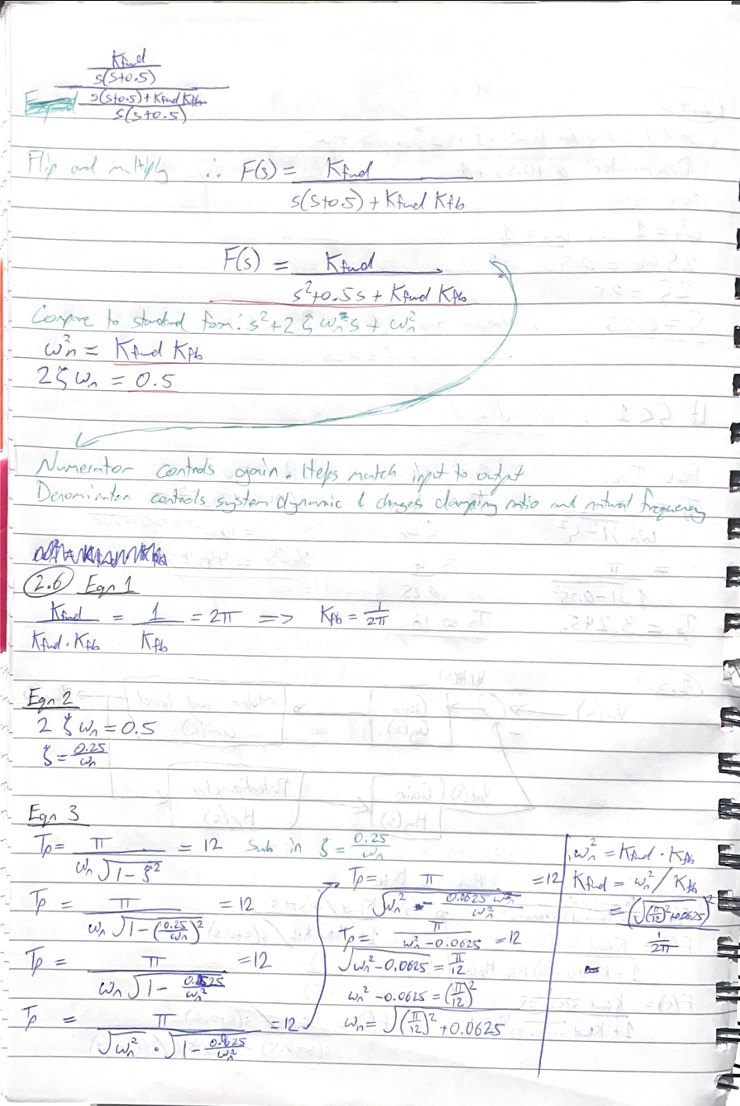 Kfwd
s(s+0.5)
s(s+0.5) + Kfwd Kfb
s(s+0.5)
Flip and multiply ∴ F(s) = Kfwd
s(s+0.5) + Kfwd Kfb
F(s) = Kfwd
s²+0.5s + Kfwd Kfb
Compare to standard form: s² + 2ζωₙs + ωₙ²
ωₙ² = Kfwd Kfb
2ζωₙ = 0.5
Numerator controls gain. Helps match input to output
Denominator controls system dynamic & changes damping ratio and natural frequency
2.6 Eqn 1
Kfwd / Kfwd·Kfb = 1 / Kfb = 2π => Kfb = 1/2π
Eqn 2
2ζωₙ = 0.5
ζ = 0.25/ωₙ
Eqn 3
Tp = π / ωₙ√1-ζ² = 12 Sub in ζ = 0.25/ωₙ
Tp = π / ωₙ√1-(0.25/ωₙ)² = 12
Tp = π / ωₙ√1 - 0.0625/ωₙ² = 12
Tp = π / √ωₙ² · √1 - 0.0625/ωₙ² = 12
Tp = π / √ωₙ² - 0.0625 ωₙ²/ωₙ² = 12
Tp = π / ωₙ² - 0.0625 = 12
√ωₙ² - 0.0625 = π/12
ωₙ² - 0.0625 = (π/12)²
ωₙ = √(π/12)² + 0.0625
ωₙ² = Kfwd · Kfb
Kfwd = ωₙ² / Kfb
= (√(π/12)² + 0.0625)²
1/2π